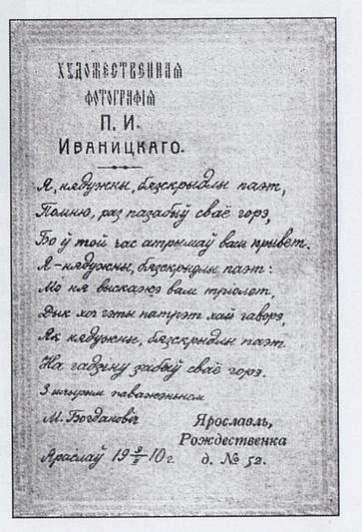 ХУДОЖЕСТВЕННАЯ
ФОТОГРАФІЯ
П. И.
ИВАНИЦКАГО.
Я, нядужны, бязскрыдлы паэт,
Помню, раз пазабыў сваё горэ,
Бо ў той час атрымаў ваш прывет.
Я – нядужны, бязскрыдлы паэт:
Мо ня выскажэ вам тріолет,
Дык хоч гэты патрэт хай гаворэ,
Як нядужны, бязскрыдлы паэт
На гадзіну забыў сваё горэ.
З шчырым паважэньнем
М. Богдановіч
Яраслаў 19 10 г.
Ярославль,
Рождественка
д. № 52.